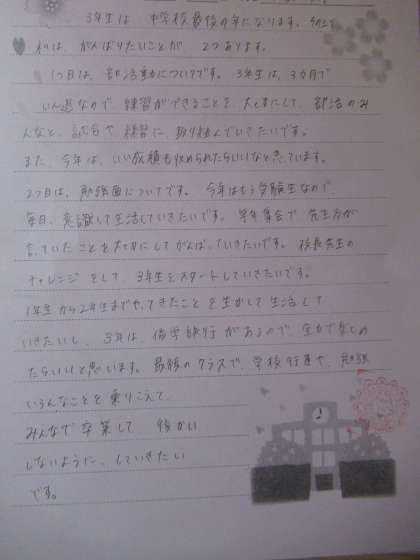 3年生は 中学校最後の年になります。
私は、がんばりたいことが 2つあります。
1つ目は、部活動についてです。3年生は、3カ月で
いん退なので、練習ができることを、大切にして、部活のみ
んなと、試合や練習に、取り組んでいきたいです。
また、今年は、いい成績も収められたらいいなと思っています。
2つ目は、勉強面についてです。今年はもう受験生なので、
毎日、意識して生活していきたいです。学年集会で、先生方が
言っていたことを大切にしてがんばっていきたいです。校長先生の
チャレンジをして、3年生をスタートしていきたいです。
1年生から2年生までやってきたことを生かして生活して
いきたいし、3年は、修学旅行があるので、全力で楽しめ
たらいいと思います。最後のクラスで、学校行事や、勉強
いろんなことを乗りこえて
みんなで卒業して 後かい
しないように、していきたい
です。